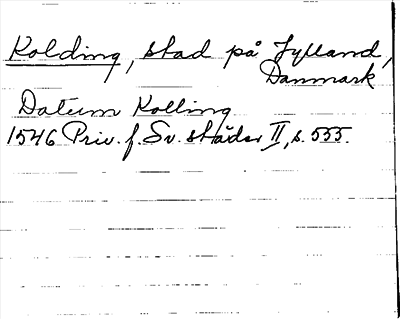 Kolding, stad på Jylland,
Danmark
Datum Kolling
1546 Priv. f. Sv. städer II, s. 555.